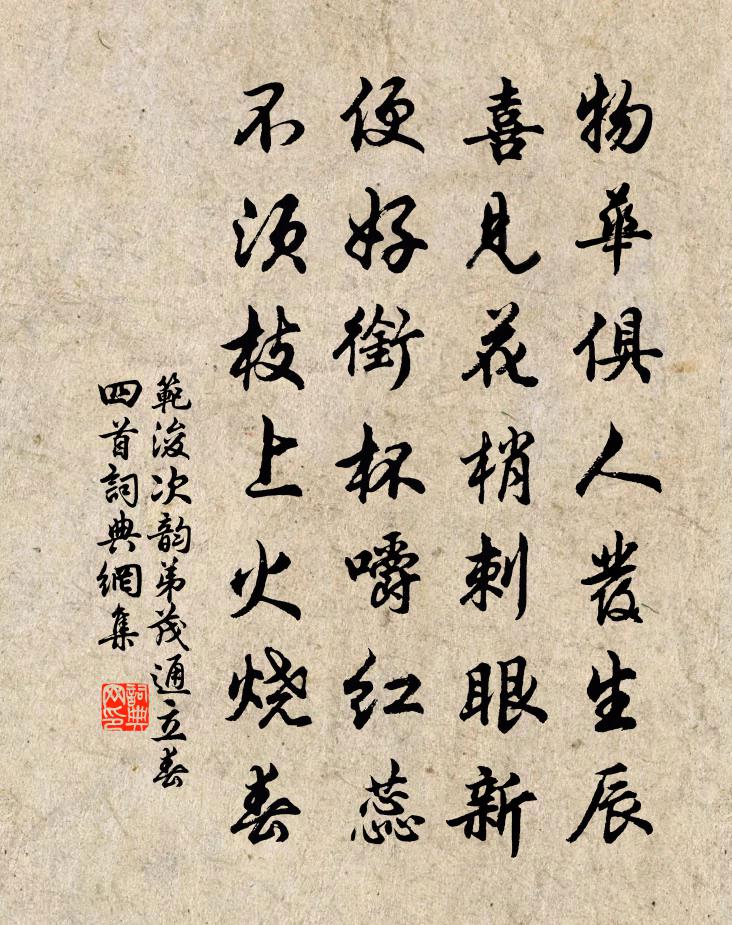 物華俱人發生辰
喜見花梢刺眼新
便好銜杯嚼紅蕊
不须枝上火烧春
範浚次韵弟茂通立春
四首詞典網集
詞典
网印